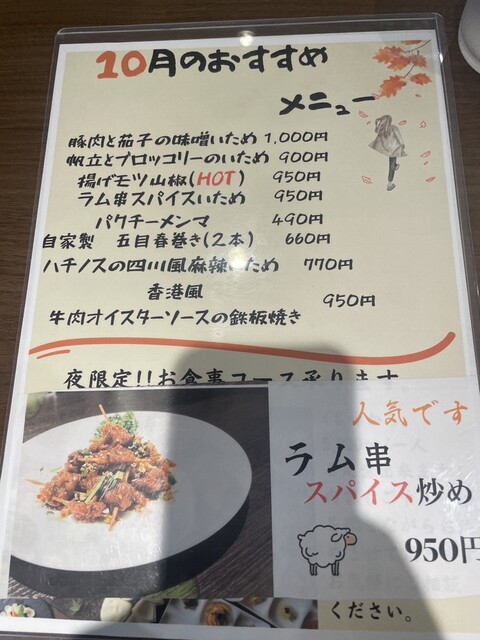 10月のおすすめ
メニュー
豚肉と茄子の味噌いため 1,000円
帆立とブロッコリーのいため 900円
揚げモツ山椒(HOT) 950円
ラム串スパイスいため 950円
パクチーメンマ 490円
自家製 五目春巻き(2本) 660円
ハチノスの四川風麻辣いため 770円
香港風
牛肉オイスターソースの鉄板焼き 950円
夜限定!!お食事コース承ります
人気です
ラム串
スパイス炒め
950円
ください。